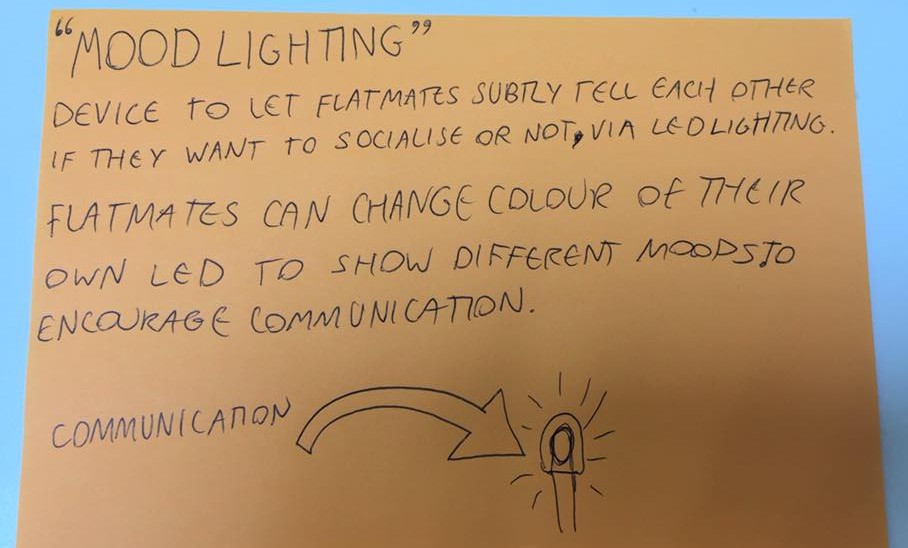 “MOOD LIGHTING”
DEVICE TO LET FLATMATES SUBTLY TELL EACH OTHER
IF THEY WANT TO SOCIALISE OR NOT, VIA LED LIGHTING.
FLATMATES CAN CHANGE COLOUR OF THEIR
OWN LED TO SHOW DIFFERENT MOODS TO
ENCOURAGE COMMUNICATION.
COMMUNICATION